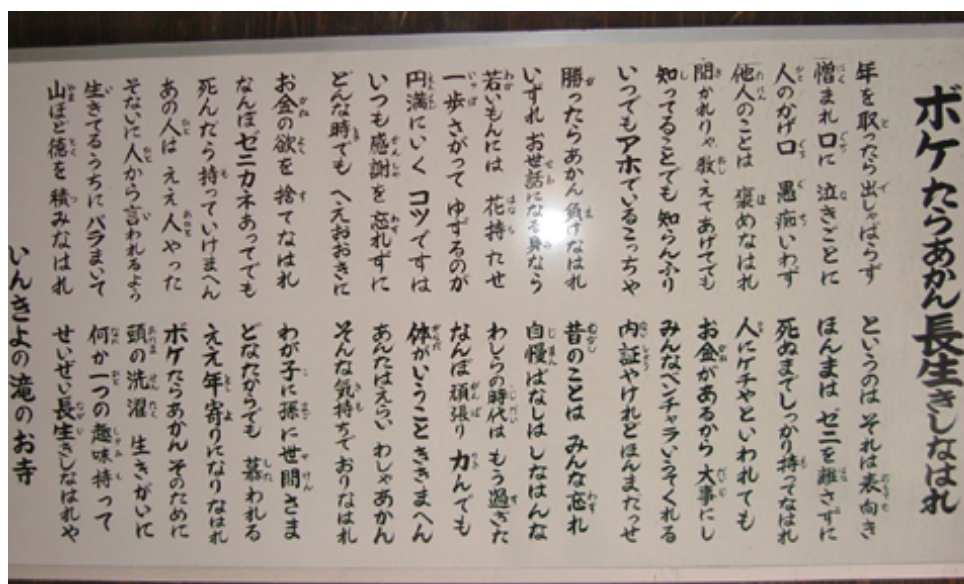 ボケたらあかん長生きしなはれ
年を取ったら出しゃばらず
憎まれ口に 泣きごとに
人のかげ口 愚痴いわず
他人のことは 褒めなはれ
聞かれりゃ 教えてあげてでも
知ってることでも 知らんふり
いつでもアホでいるこっちゃ
勝ったらあかん 負けなはれ
いずれお世話になる身なら
若いもんには 花持たせ
一歩さがって ゆずるのが
円満にいく コツですは
いつも感謝を 忘れずに
どんな時でも へえおおきに
お金の欲を 捨てなはれ
なんぼゼニカネあってでも
死んだら持っていけまへん
あの人は ええ人やった
そないに人から言われるよう
生きてるうちにバラまいて
山ほど徳を 積みなはれ
というのは それは表向き
ほんまは ゼニを離さずに
死ぬまでしっかり持ってなはれ
人にケチやといわれても
お金があるから 大事にし
みんなベンチャラいうてくれる
内証やけれどほんまだっせ
昔のことは みんな忘れ
自慢ばなしは しなはんな
わしらの時代は もう過ぎた
なんぼ頑張り 力んでも
体がいうこときまへん
あんたはえらい わしゃあかん
そんな気持ちで おりなはれ
わが子に孫に世間さま
どなたからでも 慕われる
ええ年寄りになり なはれ
ボケたらあかん そのために
頭の洗濯 生きがいに
何か一つの趣味持って
せいぜい長生きしなはれや
いんきよの滝のお寺